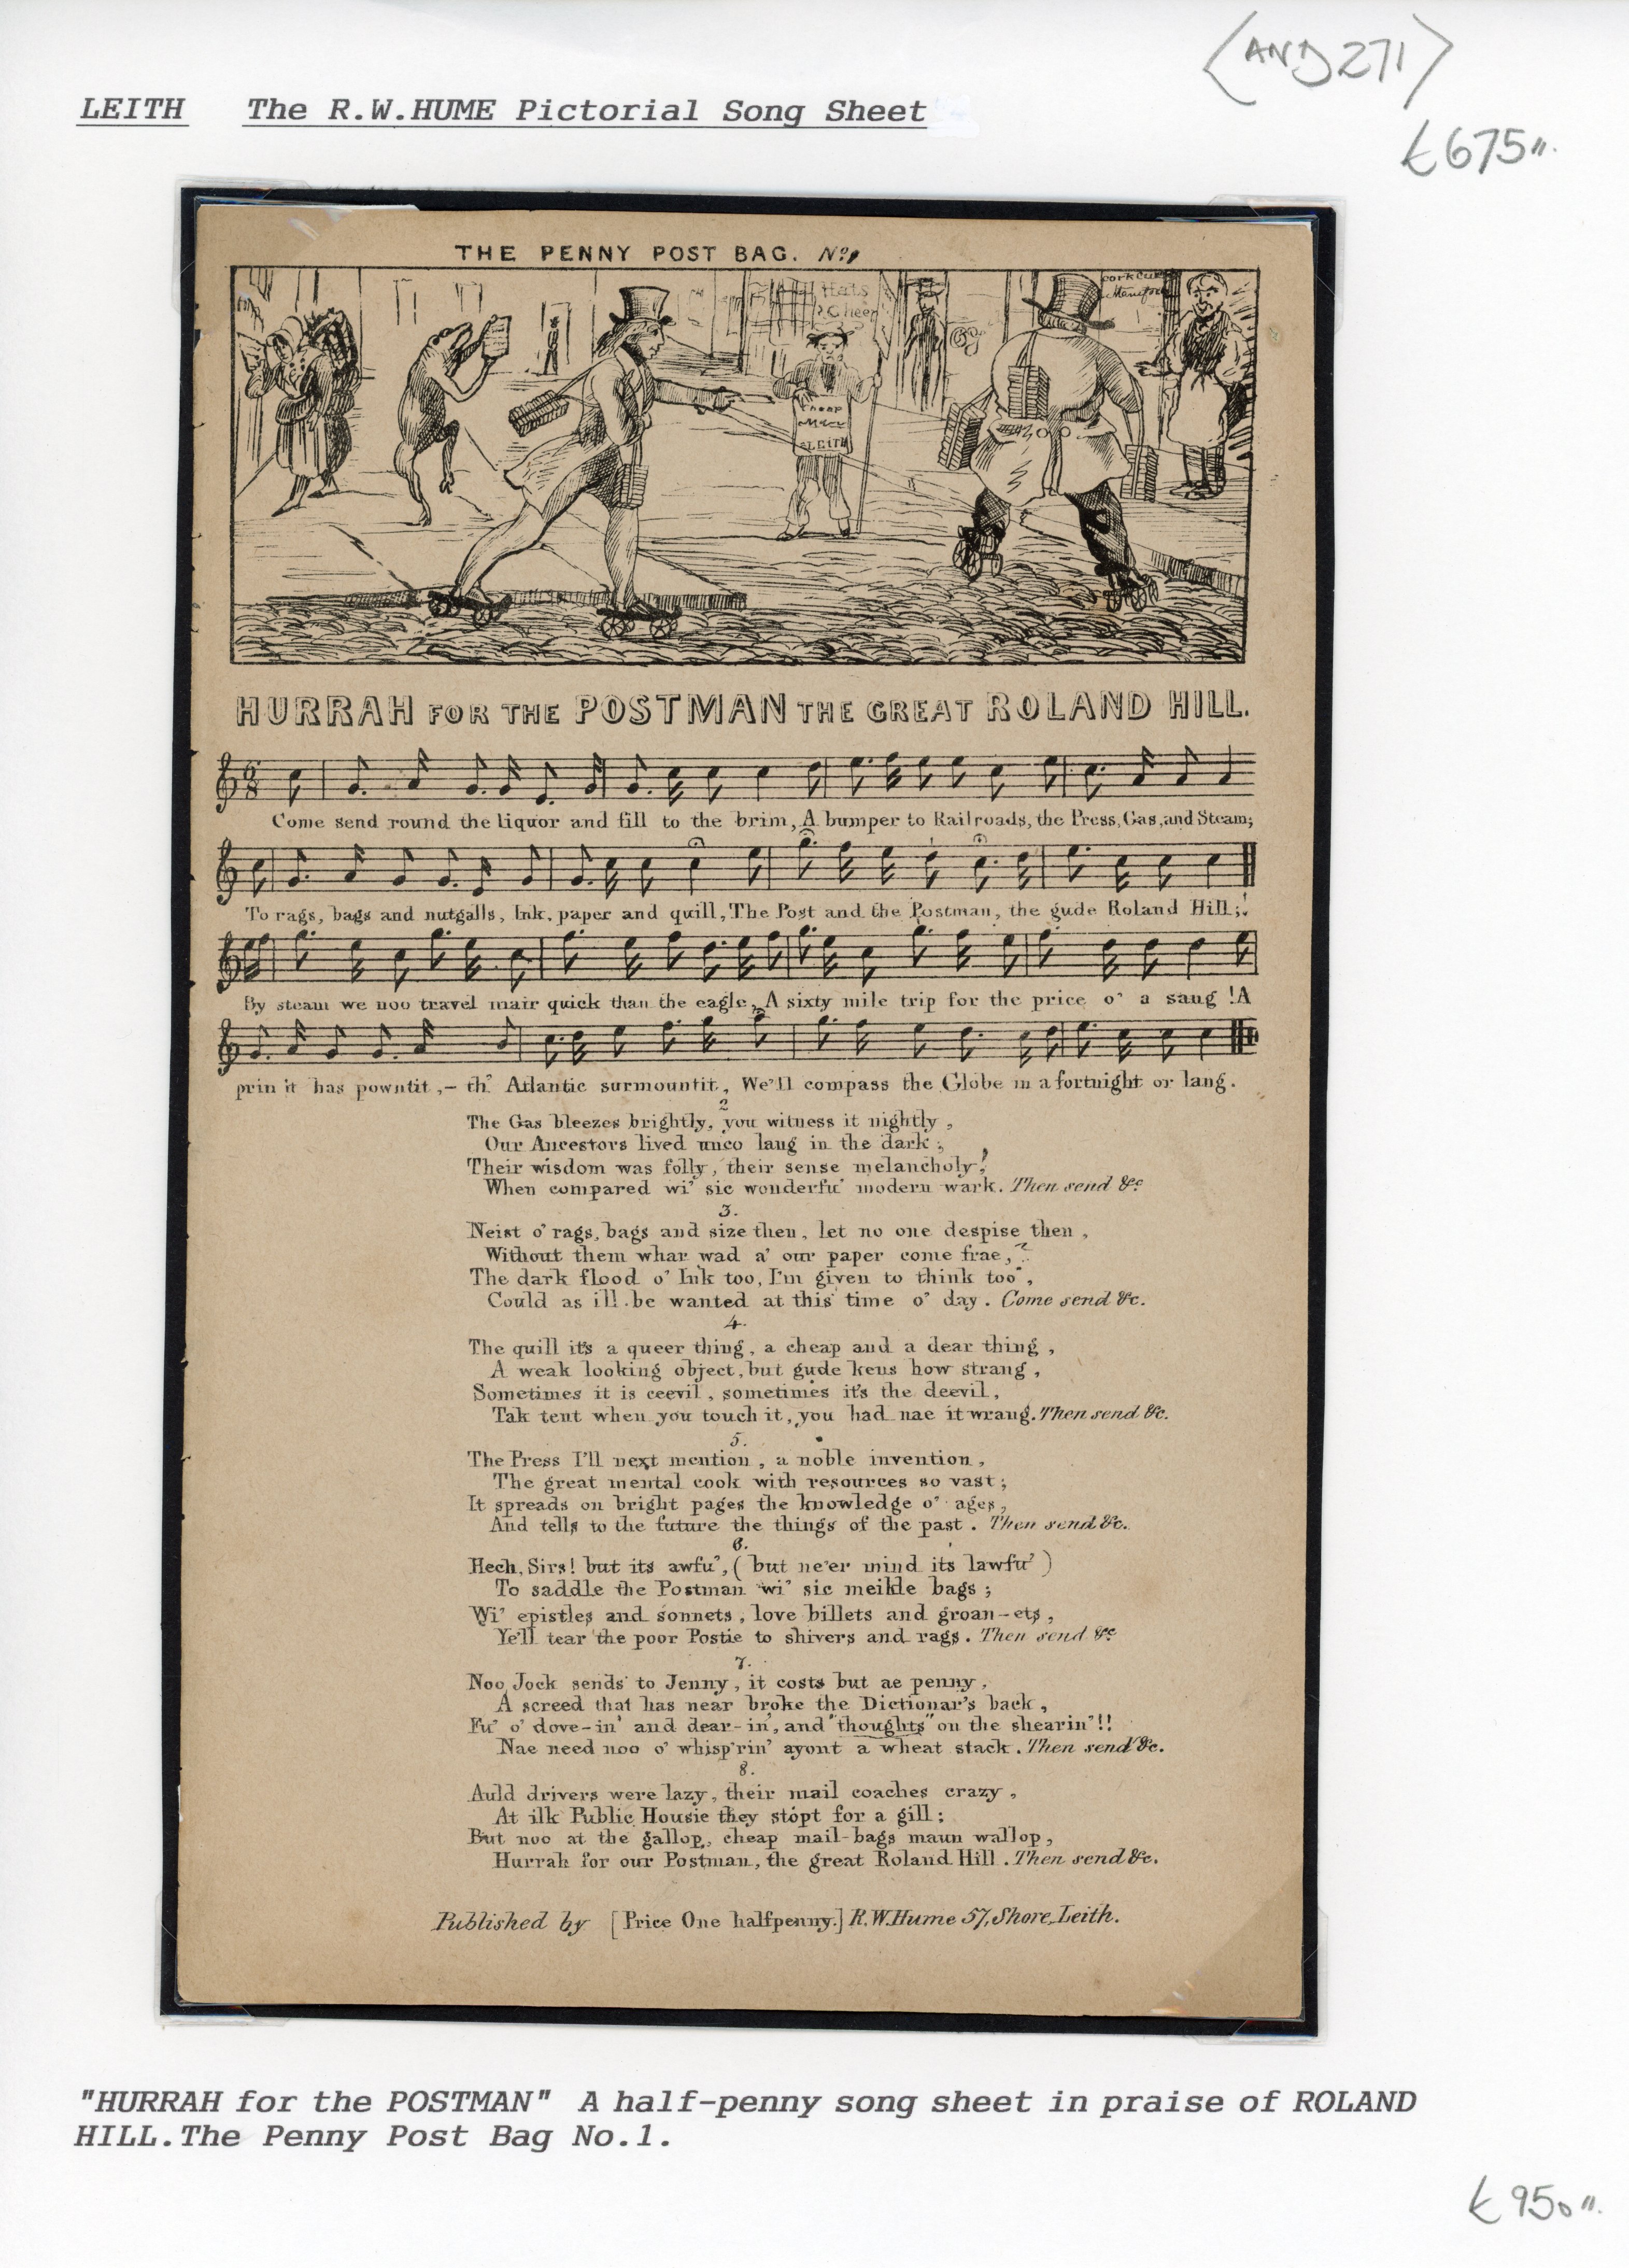 <AND 271>
LEITH The R.W.HUME Pictorial Song Sheet
£675".
THE PENNY POST BAG. No. 1
Hats
Cheap
LEITH
HURRAH FOR THE POSTMAN THE GREAT ROLAND HILL.
Come send round the liquor and fill to the brim, A bumper to Railroads, the Press, Gas, and Steam;
To rags, bags and nutgalls, Ink, paper and quill, The Post and the Postman, the gude Roland Hill;
By steam we noo travel mair quick than the eagle, A sixty mile trip for the price o' a sang! A
prin it has powntit,– th' Atlantic surmountit, We'll compass the Globe in a fortnight or lang.
2
The Gas bleezes brightly, you witness it nightly,
Our Ancestors lived unco lang in the dark;
Their wisdom was folly, their sense melancholy!
When compared wi' sic wonderfu' modern wark. Then send &c
3.
Neist o' rags, bags and size then, let no one despise then,
Without them whar wad a' our paper come frae,?
The dark flood o' Ink too, I'm given to think too,
Could as ill be wanted at this time o' day. Come send &c.
4.
The quill it's a queer thing, a cheap and a dear thing,
A weak looking object, but gude kens how strang,
Sometimes it is ceevil, sometimes it's the deevil,
Tak tent when you touch it, you had nae it wrang. Then send &c.
5.
The Press I'll next mention, a noble invention,
The great mental cook with resources so vast;
It spreads on bright pages the knowledge o' ages,
And tells to the future the things of the past. Then send &c.
6.
Hech, Sirs! but its awfu', (but ne'er mind its lawfu')
To saddle the Postman wi' sic meikle bags;
Wi' epistles and sonnets, love billets and groan-ets,
Ye'll tear the poor Postie to shivers and rags. Then send &c
7.
Noo Jock sends to Jenny, it costs but ae penny,
A screed that has near broke the Dictionar's back,
Fu' o' dove-in' and dear-in', and "thoughts" on the shearin'!!
Nae need noo o' whisp'rin' ayont a wheat stack. Then send &c.
8.
Auld drivers were lazy, their mail coaches crazy,
At ilk Public Housie they stopt for a gill;
But noo at the gallop, cheap mail-bags maun wallop,
Hurrah for our Postman, the great Roland Hill. Then send &c.
Published by [Price One halfpenny.] R.W.Hume 57, Shore, Leith.
"HURRAH for the POSTMAN" A half-penny song sheet in praise of ROLAND
HILL.The Penny Post Bag No.1.
£950".